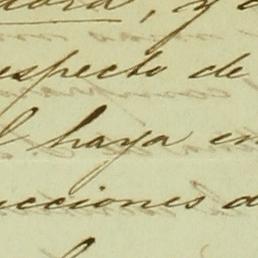 dora, y d
especto de
l haya en
ucciones d